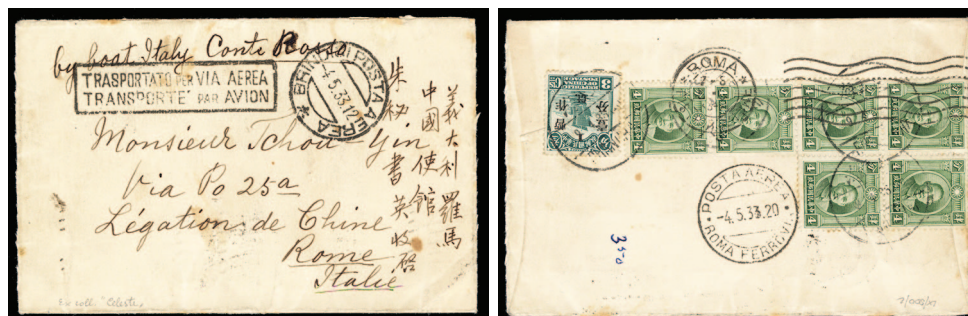 by boat Italy Conte Rosso
TRASPORTATO PER VIA AEREA
TRANSPORTÉ PAR AVION
BRINDISI POSTA AEREA
4.5.33.12
Monsieur Tchou-Yin
Via Po 25a
Légation de Chine
Rome
Italie
義大利羅馬
中國使館
朱秘書英收啓
Ex coll. "Celeste"
ROMA
POSTA AEREA
-4.5.33.20
ROMA FERROVIA
350